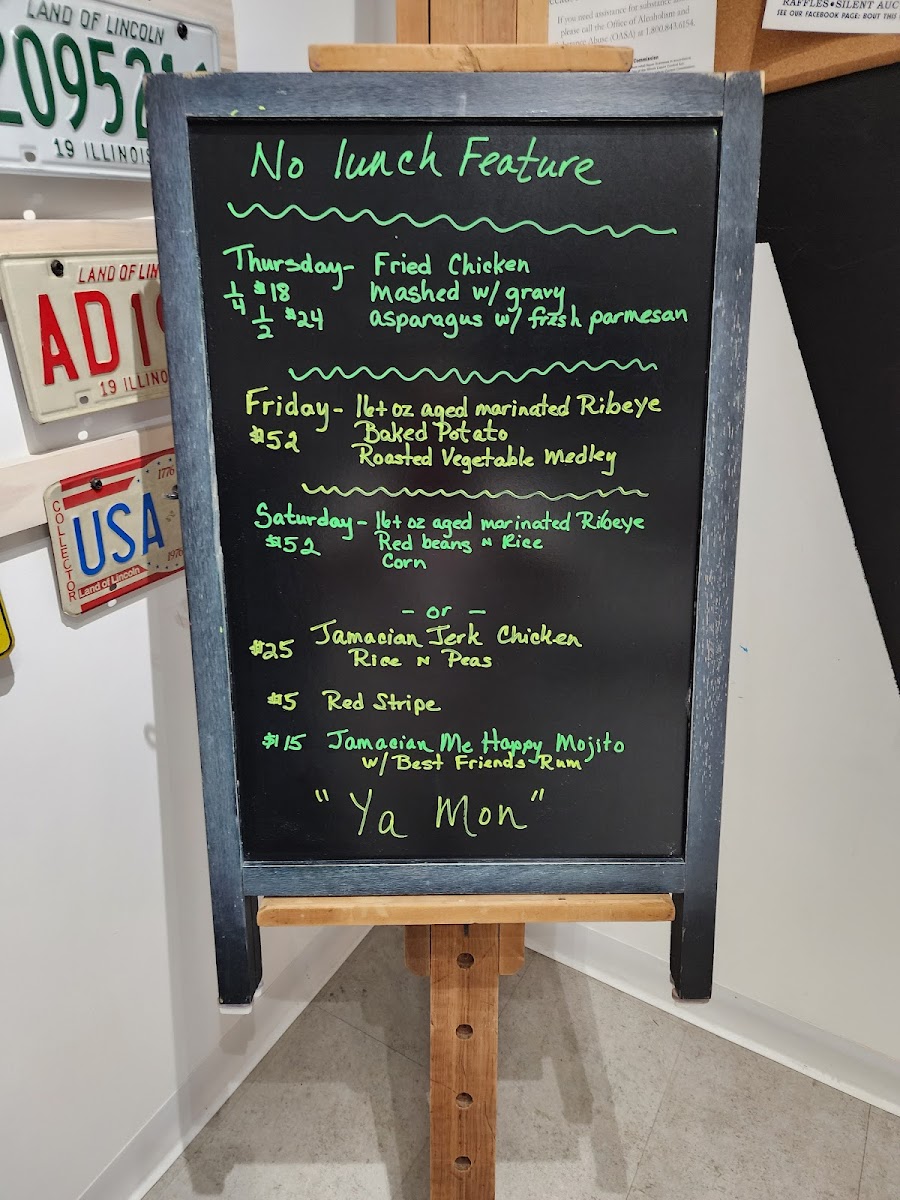 LAND OF LINCOLN
2095
19 ILLINOIS
LAND OF LIN
AD
19 ILLINO
COLLECTOR
1776
USA
1976
Land of Lincoln
If you need assistance for substance
please call the Office of Alcoholism and
Abuse (OASA) at 1.800.843.6154.
RAFFLES•SILENT AUC
SEE OUR FACEBOOK PAGE: BOUT THIS
No lunch Feature
Thursday- Fried Chicken
1/4 $18 Mashed w/ gravy
1/2 $24 asparagus w/ fresh parmesan
Friday- 16+ oz aged marinated Ribeye
$52 Baked Potato
Roasted Vegetable Medley
Saturday- 16+ oz aged marinated Ribeye
$52 Red beans N Rice
Corn
- or -
$25 Jamacian Jerk Chicken
Rice N Peas
$5 Red Stripe
$15 Jamacian Me Happy Mojito
w/ Best Friends Rum
"Ya Mon"